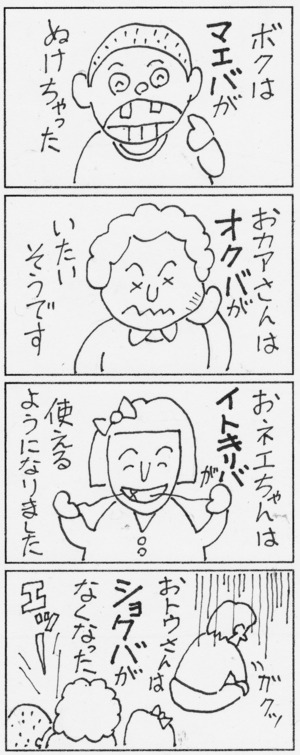 ボクは
マエバが
ぬけちゃった
おカアさんは
オクバが
いたい
そうです
おネエちゃんは
イトキリバが
使える
ようになりました
ガクッ
おトウさんは
ショクバが
なくなった
エッー